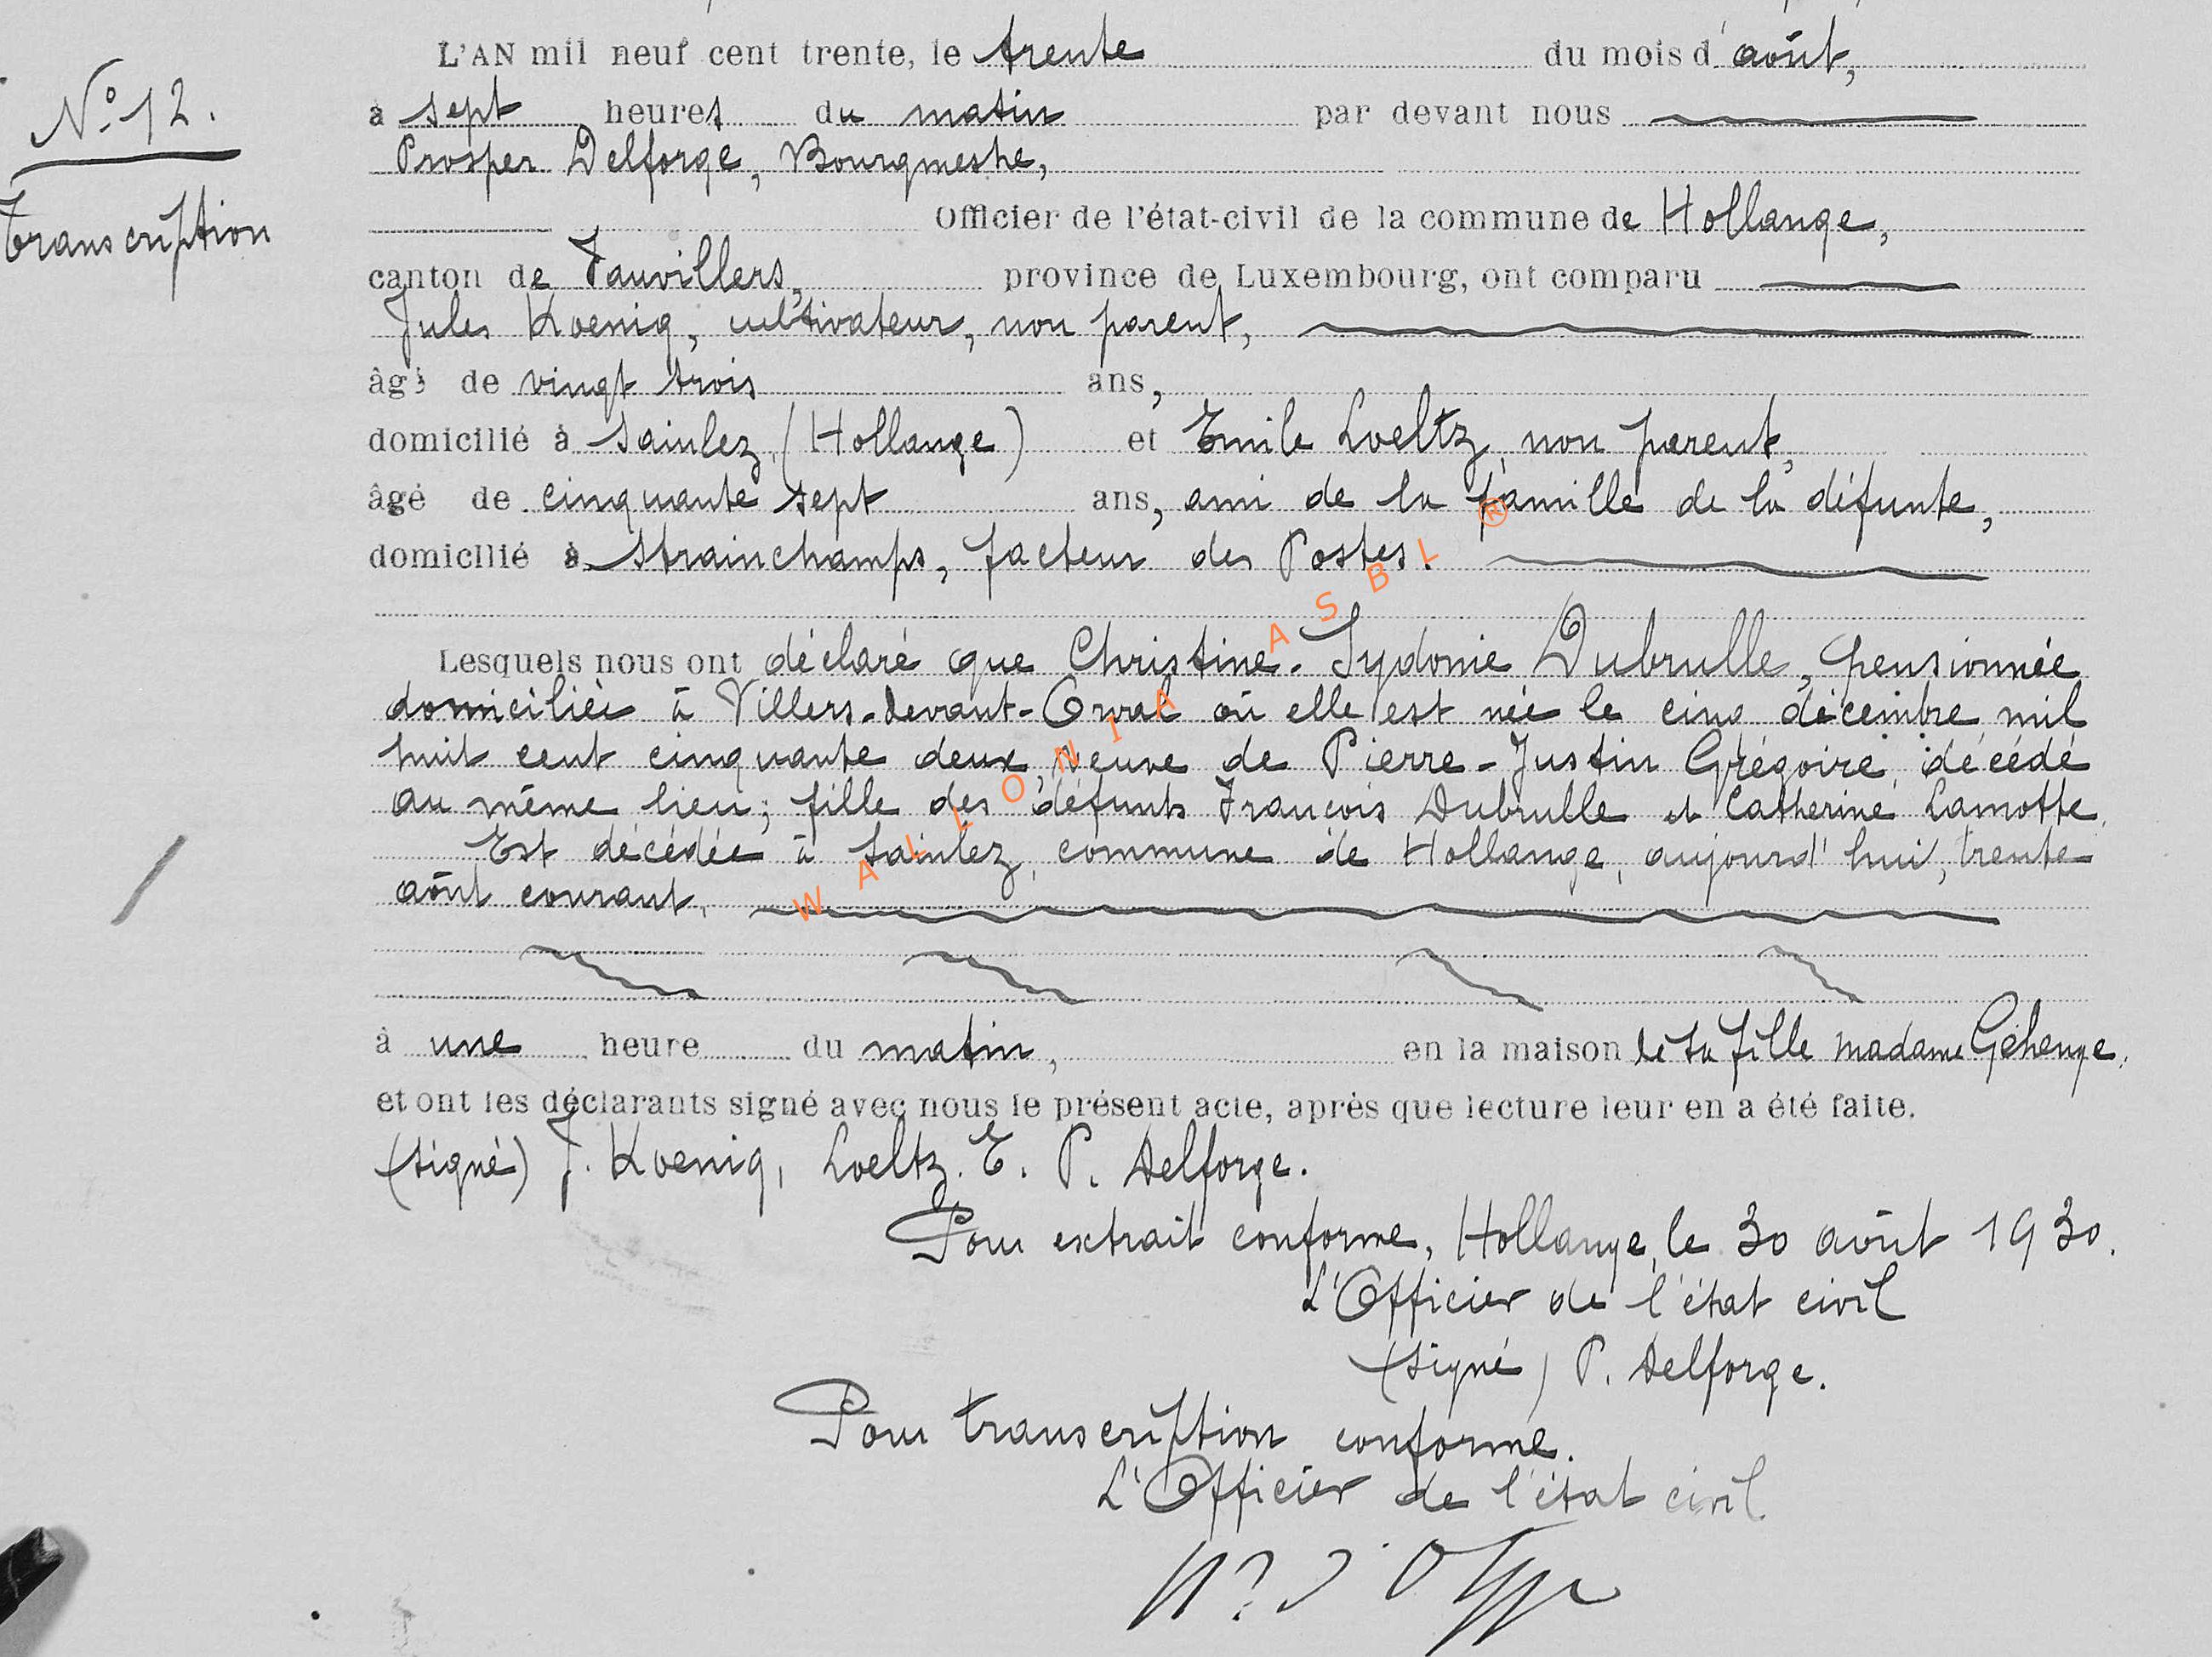 L'AN mil neuf cent trente, le trente du mois d'août,
N° 12.
à sept heures du matin par devant nous
Prosper Delforge, Bourgmestre,
Transcription
Officier de l'état-civil de la commune de Hollange,
canton de Fauvillers, province de Luxembourg, ont comparu
Jules Koenig, cultivateur, non parent,
âgé de vingt trois ans,
domicilié à Sainlez (Hollange) et Emile Loeltz, non parent,
âgé de cinquante sept ans, ami de la famille de la défunte,
domicilié à Strainchamps, facteur des Postes.
Lesquels nous ont déclaré que Christine-Sydonie Dubrulle, pensionnée
domiciliée à Villers-devant-Orval où elle est née le cinq décembre mil
huit cent cinquante deux, veuve de Pierre-Justin Grégoire, décédé
au même lieu; fille des défunts François Dubrulle et Catherine Lamotte.
Est décédée à Sainlez, commune de Hollange, aujourd'hui, trente
août courant.
à une heure du matin, en la maison de sa fille madame Gehenge.
et ont les déclarants signé avec nous le présent acte, après que lecture leur en a été faite.
(signé) J. Koenig, Loeltz. E. P. Delforge.
Pour extrait conforme, Hollange, le 30 août 1930.
L'Officier de l'état civil
(signé) P. Delforge.
Pour transcription conforme.
L'Officier de l'état civil.
WALLONIA ASBL ®